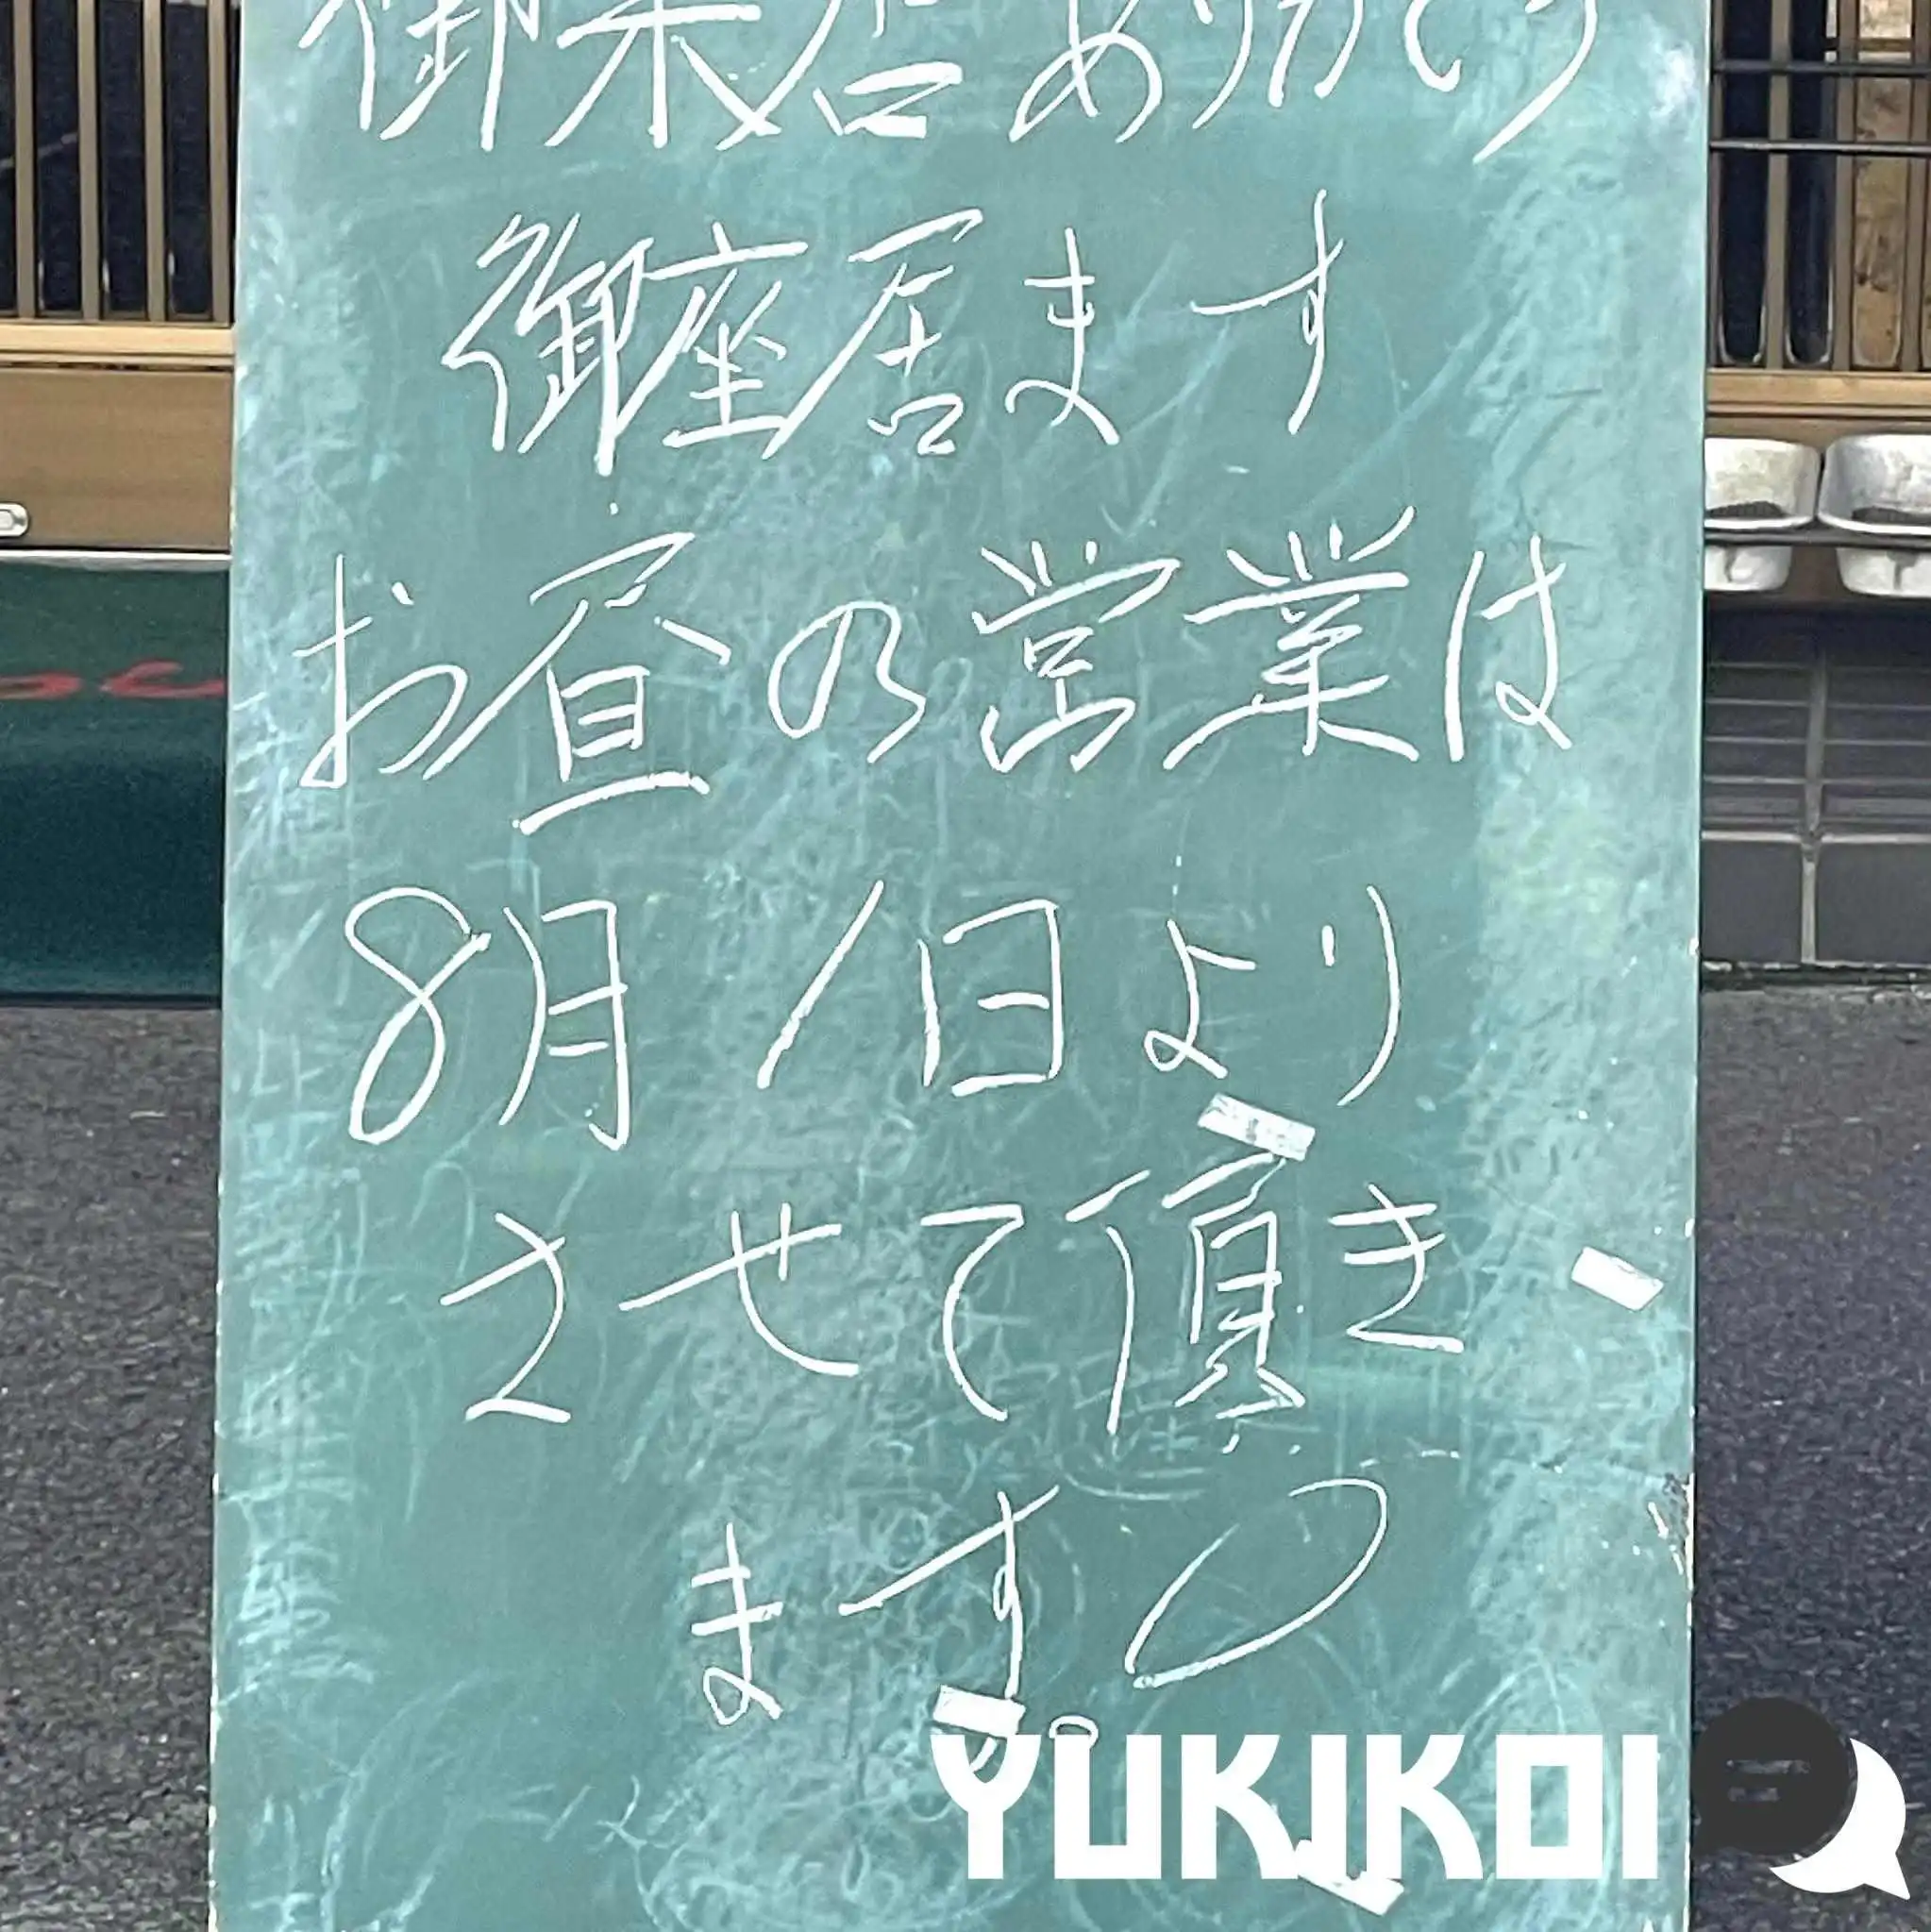 御来店ありがとう
御座居ます
お昼の営業は
8月1日より
させて頂き
ます。
YUKIKOI